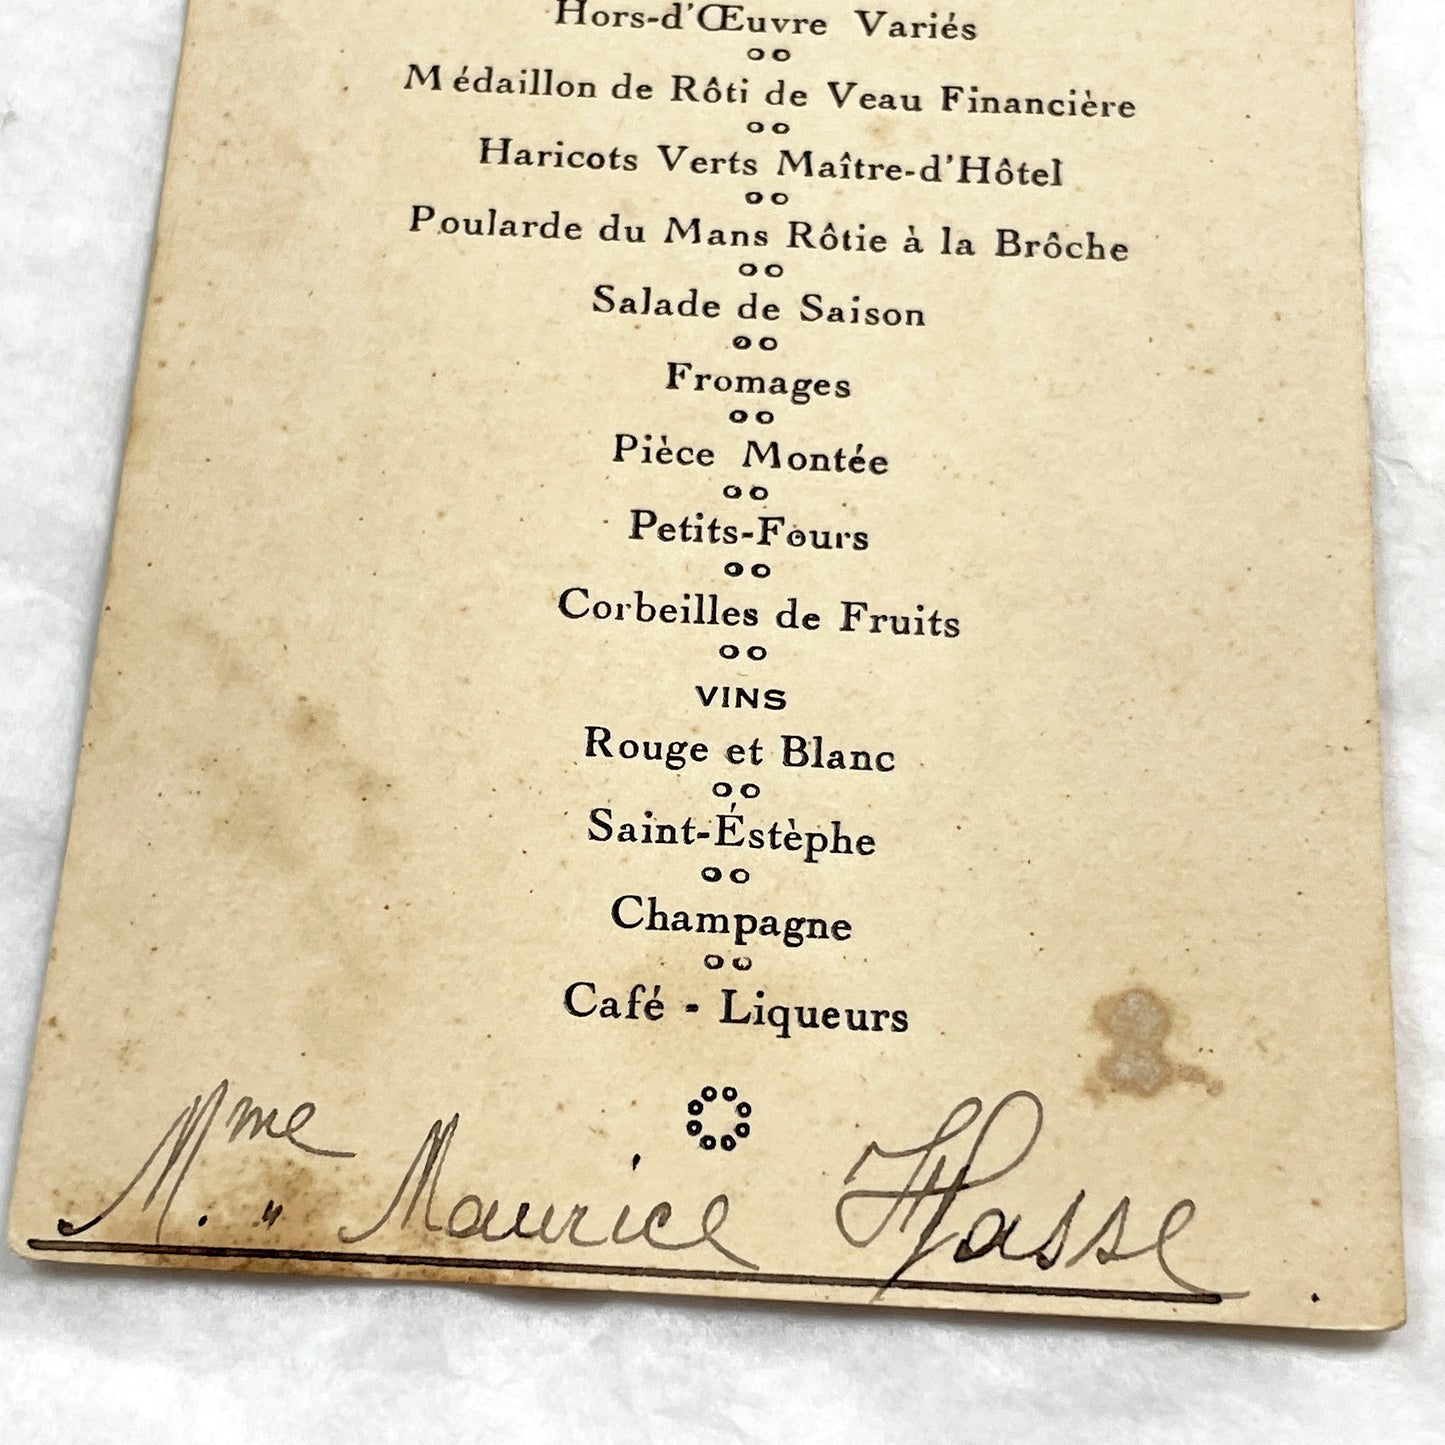 Hors-d'Œuvre Variés
Médaillon de Rôti de Veau Financière
Haricots Verts Maître-d'Hôtel
Poularde du Mans Rôtie à la Brôche
Salade de Saison
Fromages
Pièce Montée
Petits-Fours
Corbeilles de Fruits
VINS
Rouge et Blanc
Saint-Éstèphe
Champagne
Café - Liqueurs
Mme Maurice Hasse